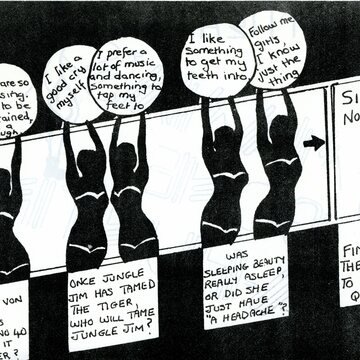 are so
sing.
to be
tained,
a
ugh.
I like a
good cry
myself
I prefer a
lot of music
and dancing,
something to
tap my
feet to
I like
something
to get my
teeth into
Follow me
girls,
I know
just the
thing
SI
NO
VON
NO 40
IT
ER?
ONCE JUNGLE
JIM HAS TAMED
THE TIGER,
WHO WILL TAME
JUNGLE JIM?
WAS
SLEEPING BEAUTY
REALLY ASLEEP,
OR DID SHE
JUST HAVE
"A HEADACHE"?
FIN
THE
TO
Q